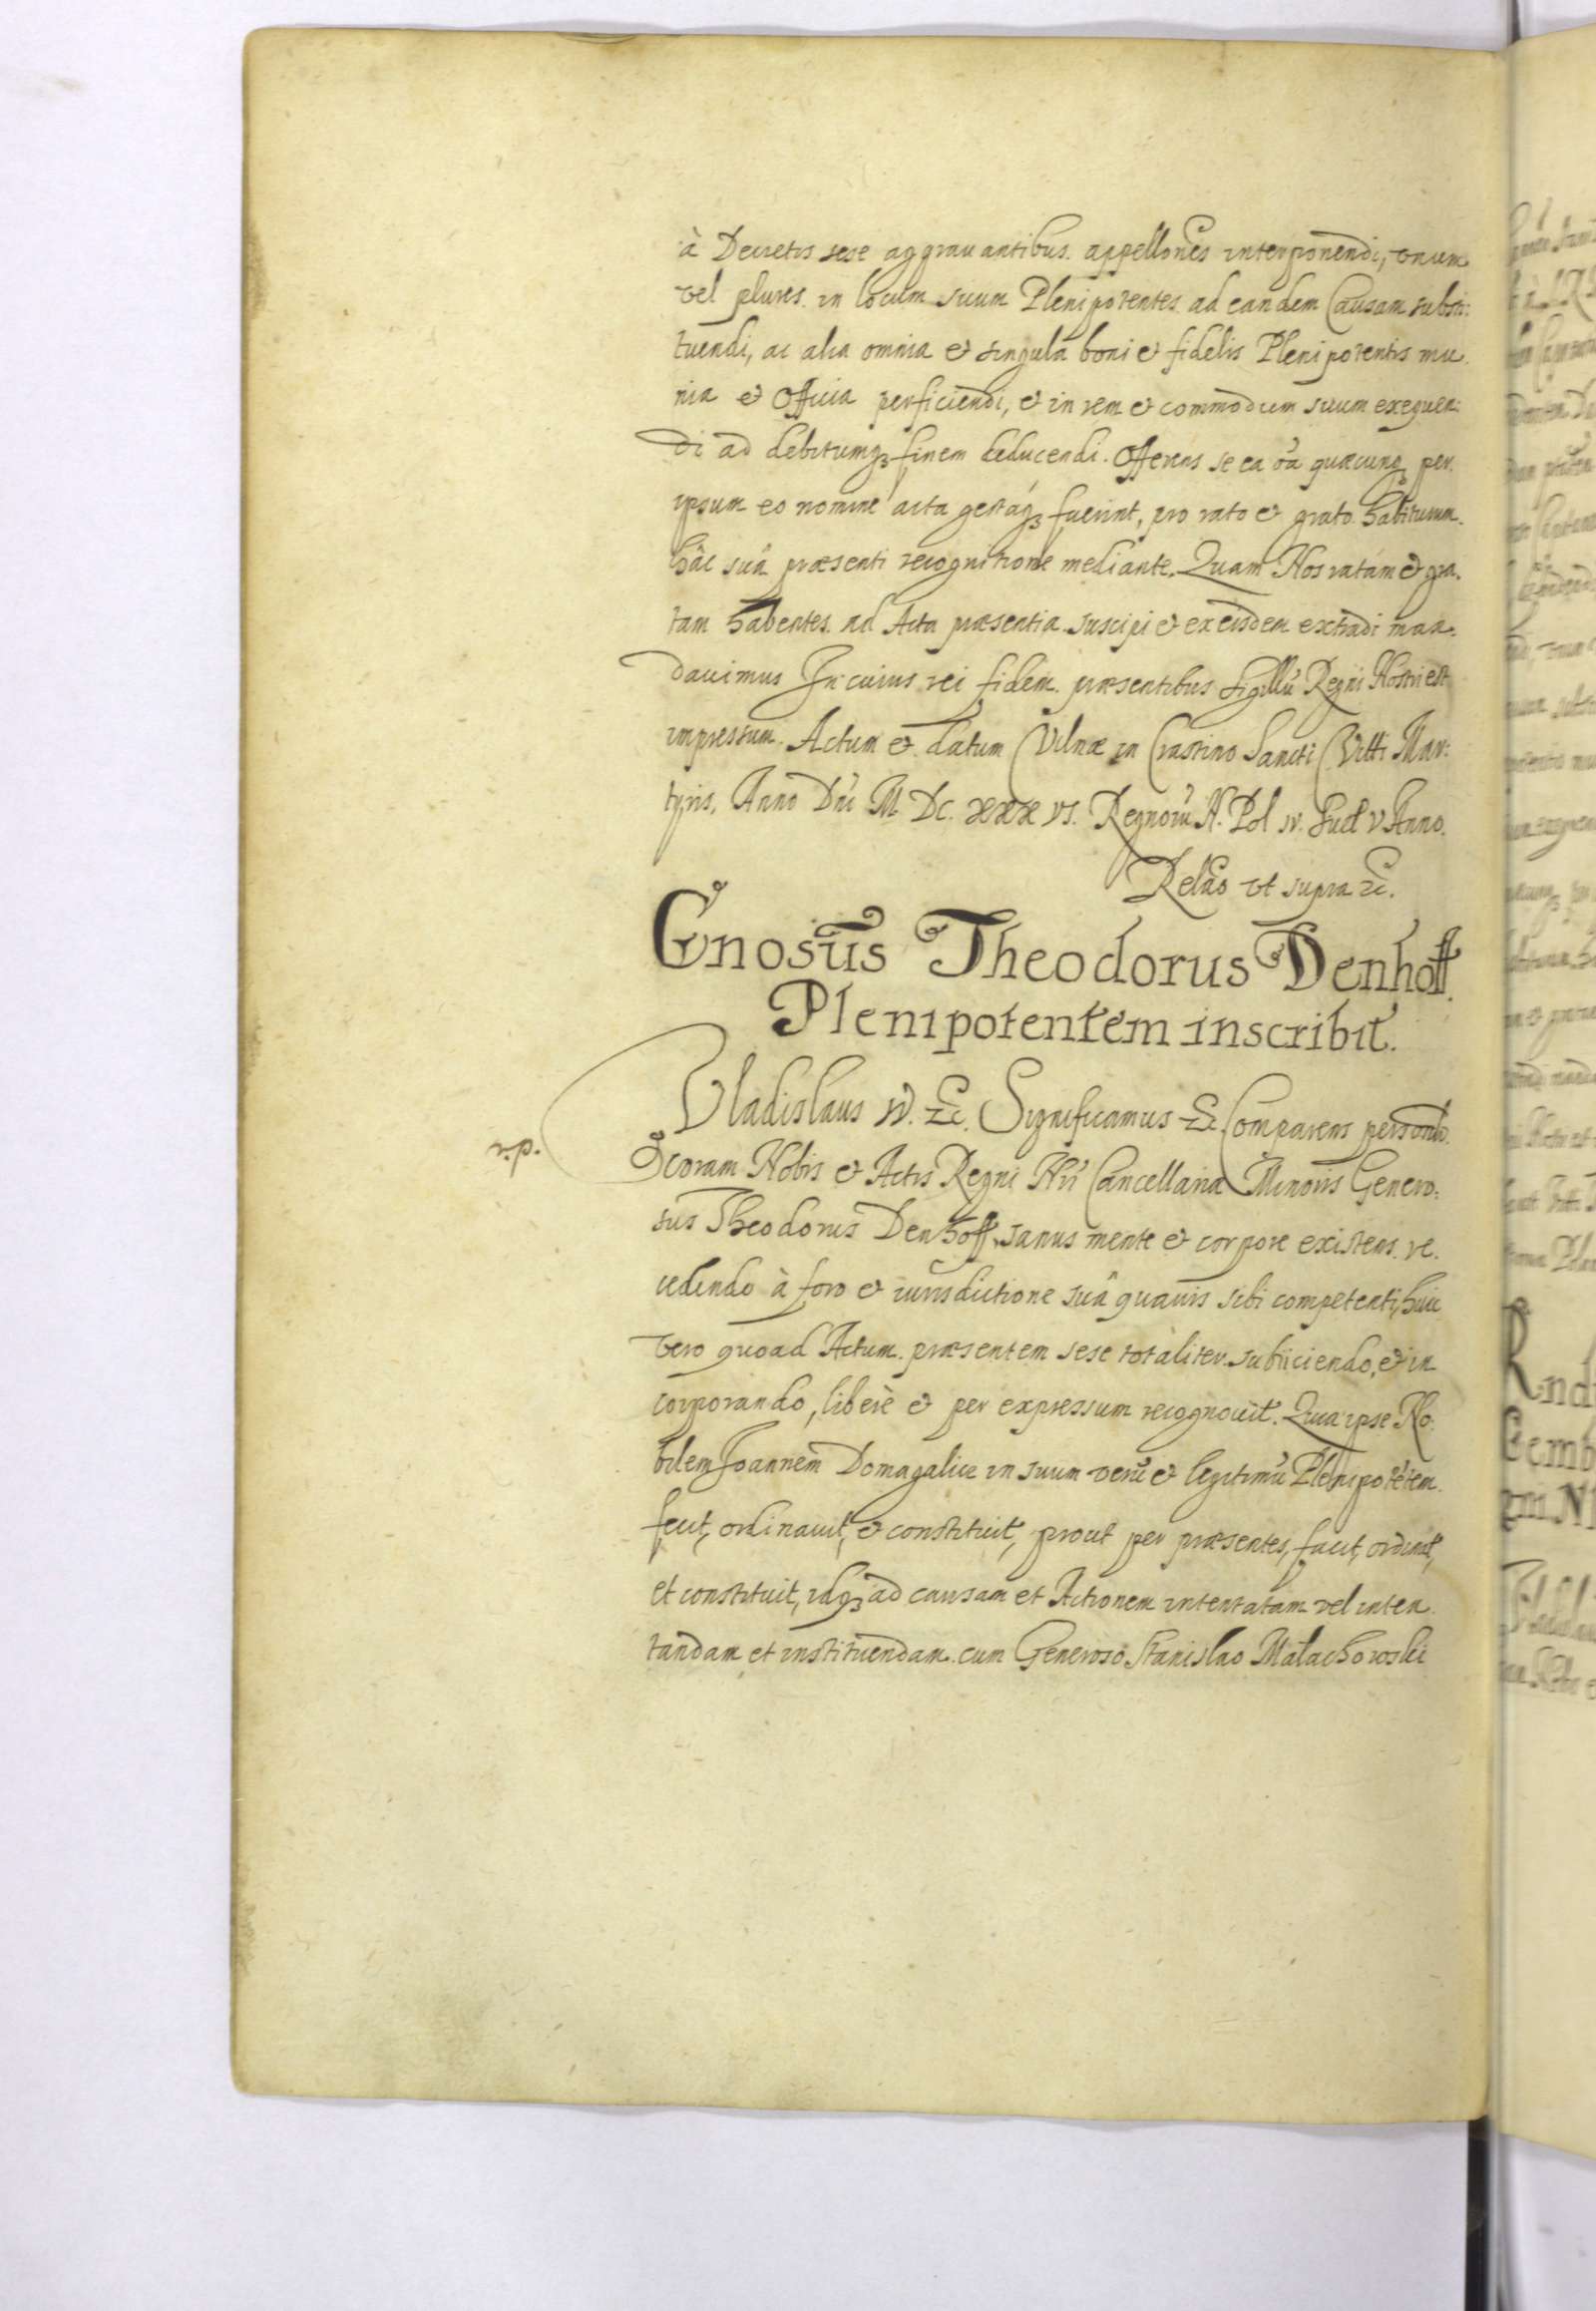 à Decretis sese aggrauantibus. appellones interponendi, vnum
vel plures in locum suum Plenipotentes ad eandem Causam substi:
tuendi, ac alia omnia et singula boni et fidelis Plenipotentis mu
nia et Officia perficiendi, et in rem et commodum suum exequen:
di ad debitumq3 finem deducendi. Offerens se ea oã quæcunq3 per
ipsum eo nomine acta gestáq3 fuerint, pro rato et grato habiturum
hâc suâ præsenti recognitione mediante. Quam Nos ratam et gra.
tam habentes ad Acta præsentia suscipi et ex eisdem extradi man.
dauimus In cuius rei fidem præsentibus sigillũ Regni Nostri est
impressum. Actum et datum Vilnæ in Crastino Sancti Vitti Mar:
tyris, Anno Dñi M. DC. XXX VI. Regnorũ N. Pol IV. Suet V Anno.
Relão vt supra etc.
Gnosũs Theodorus Denhoff.
Plenipotentem inscribit.
Vladislaus IV. etc. Significamus etc. Comparens personlr.
r.p.
coram Nobis et Actis Regni Nri Cancellaria Minoris Genero:
sus Theodorus Denhoff, sanus mente et corpore existens re.
cedendo à foro et iurisdictione suâ quauis sibi competenti, huic
vero quoad Actum præsentem sese totaliter subiiciendo, et in
corporando, liberè et per expressum recognouit. Quia ipse No
bilem Joannem Domagalice in suum verũ et legitimũ Plenipotẽtem
fecit, ordinauit, et constituit, prout per præsentes, facit, ordinat,
et constituit, idq3 ad causam et Actionem intentatam vel inten
tandam et instituendam cum Generoso Stanislao Małachowski